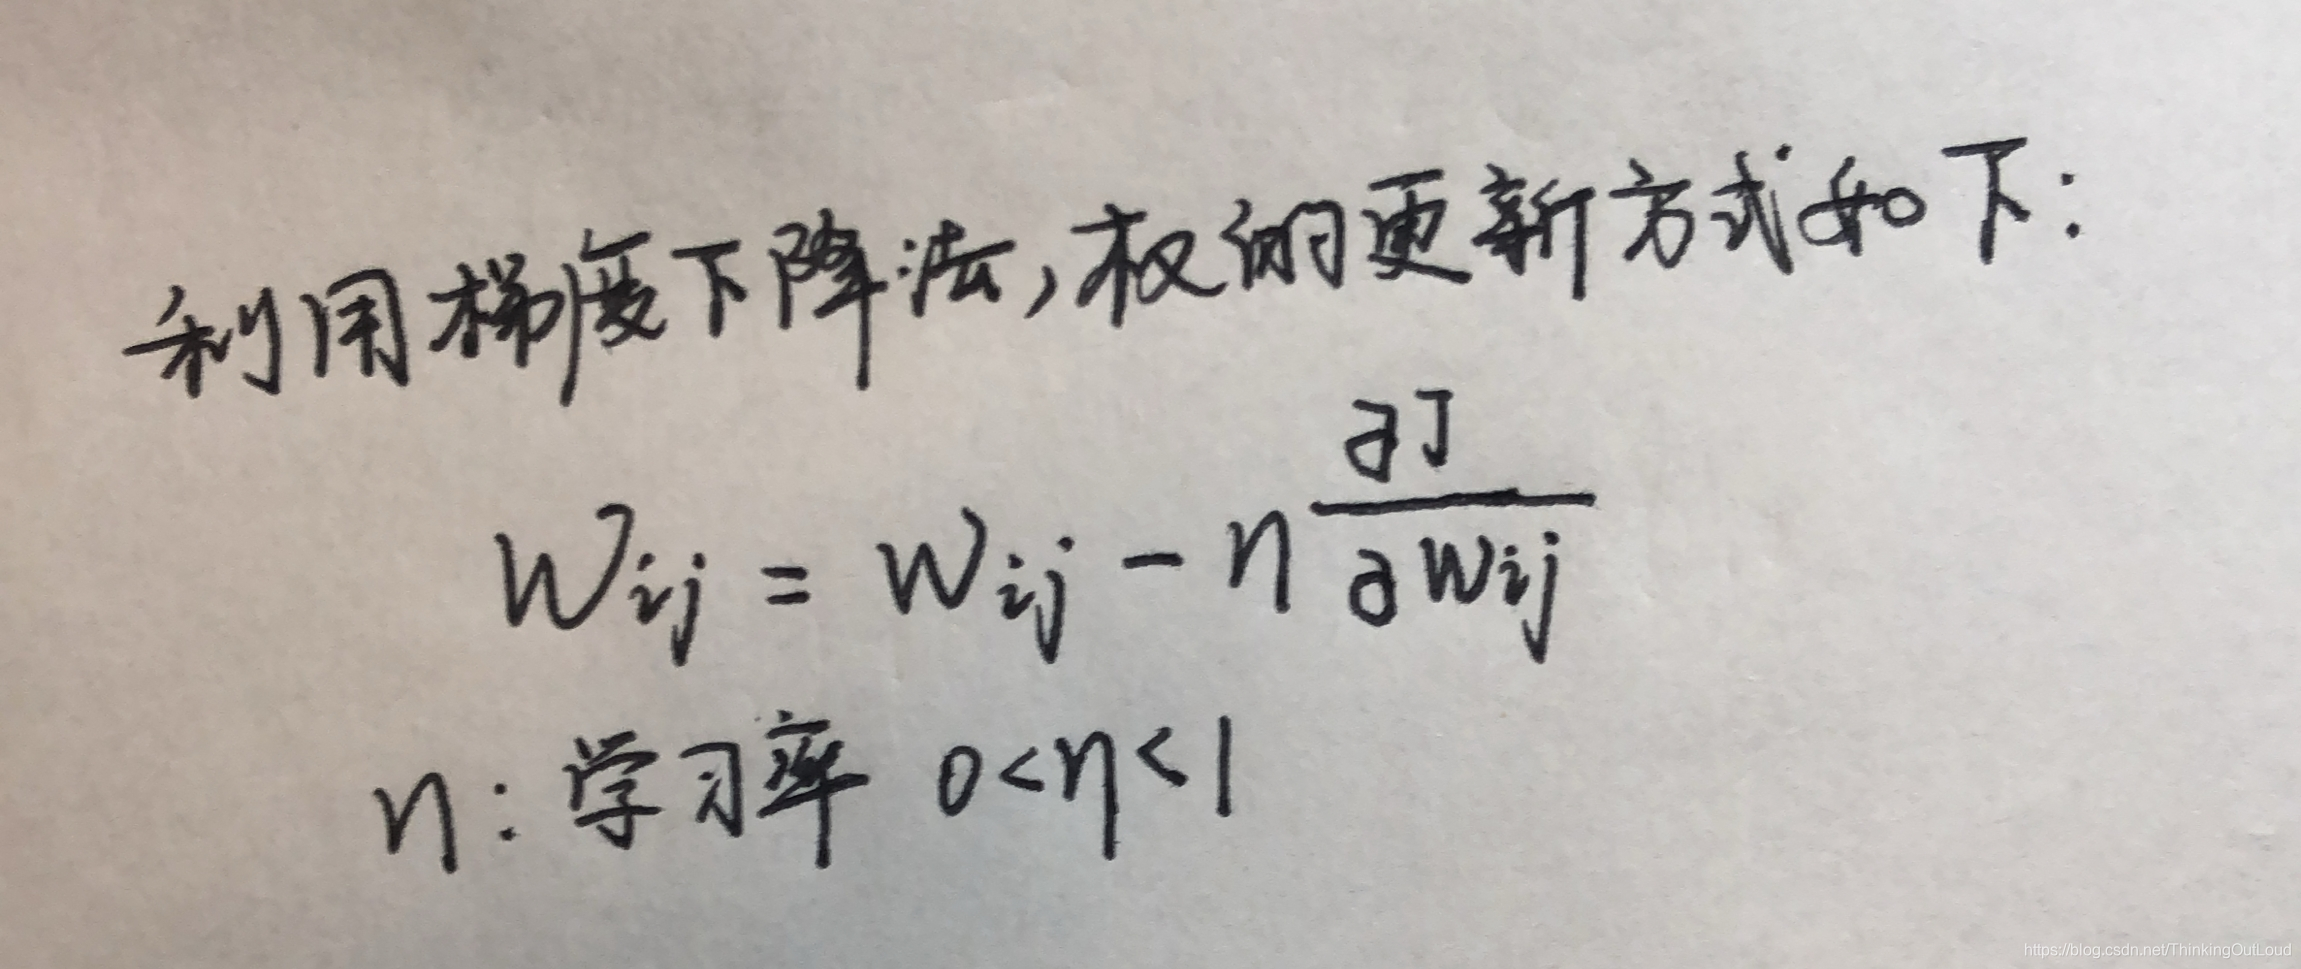 利用梯度下降法,权的更新方式如下:
Wij = Wij - η ∂J/∂Wij
η: 学习率 0<η<1
https://blog.csdn.net/ThinkingOutLoud